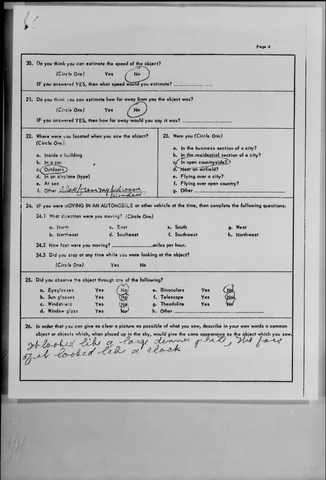 Page 4
20. Do you think you can estimate the speed of the object?
(Circle One) Yes No
IF you answered YES, then what speed would you estimate?
21. Do you think you can estimate how far away from you the object was?
(Circle One) Yes No
IF you answered YES, then how far away would you say it was?
22. Where were you located when you saw the object?
(Circle One):
a. Inside a building
b. In a car
c. Outdoors
d. In an airplane (type)
e. At sea
f. Other Also from my bedroom
window
23. Were you (Circle One)
a. In the business section of a city?
b. In the residential section of a city?
c. In open countryside?
d. Near an airfield?
e. Flying over a city?
f. Flying over open country?
g. Other
24. IF you were MOVING IN AN AUTOMOBILE or other vehicle at the time, then complete the following questions:
24.1 What direction were you moving? (Circle One)
a. North c. East e. South g. West
b. Northeast d. Southeast f. Southwest h. Northwest
24.2 How fast were you moving? miles per hour.
24.3 Did you stop at any time while you were looking at the object?
(Circle One) Yes No
25. Did you observe the object through any of the following?
a. Eyeglasses Yes No e. Binoculars Yes No
b. Sun glasses Yes No f. Telescope Yes No
c. Windshield Yes No g. Theodolite Yes No
d. Window glass Yes No h. Other
26. In order that you can give as clear a picture as possible of what you saw, describe in your own words a common
object or objects which, when placed up in the sky, would give the same appearance as the object which you saw.
It looked like a large dinner plate, the face
of it looked like a clock